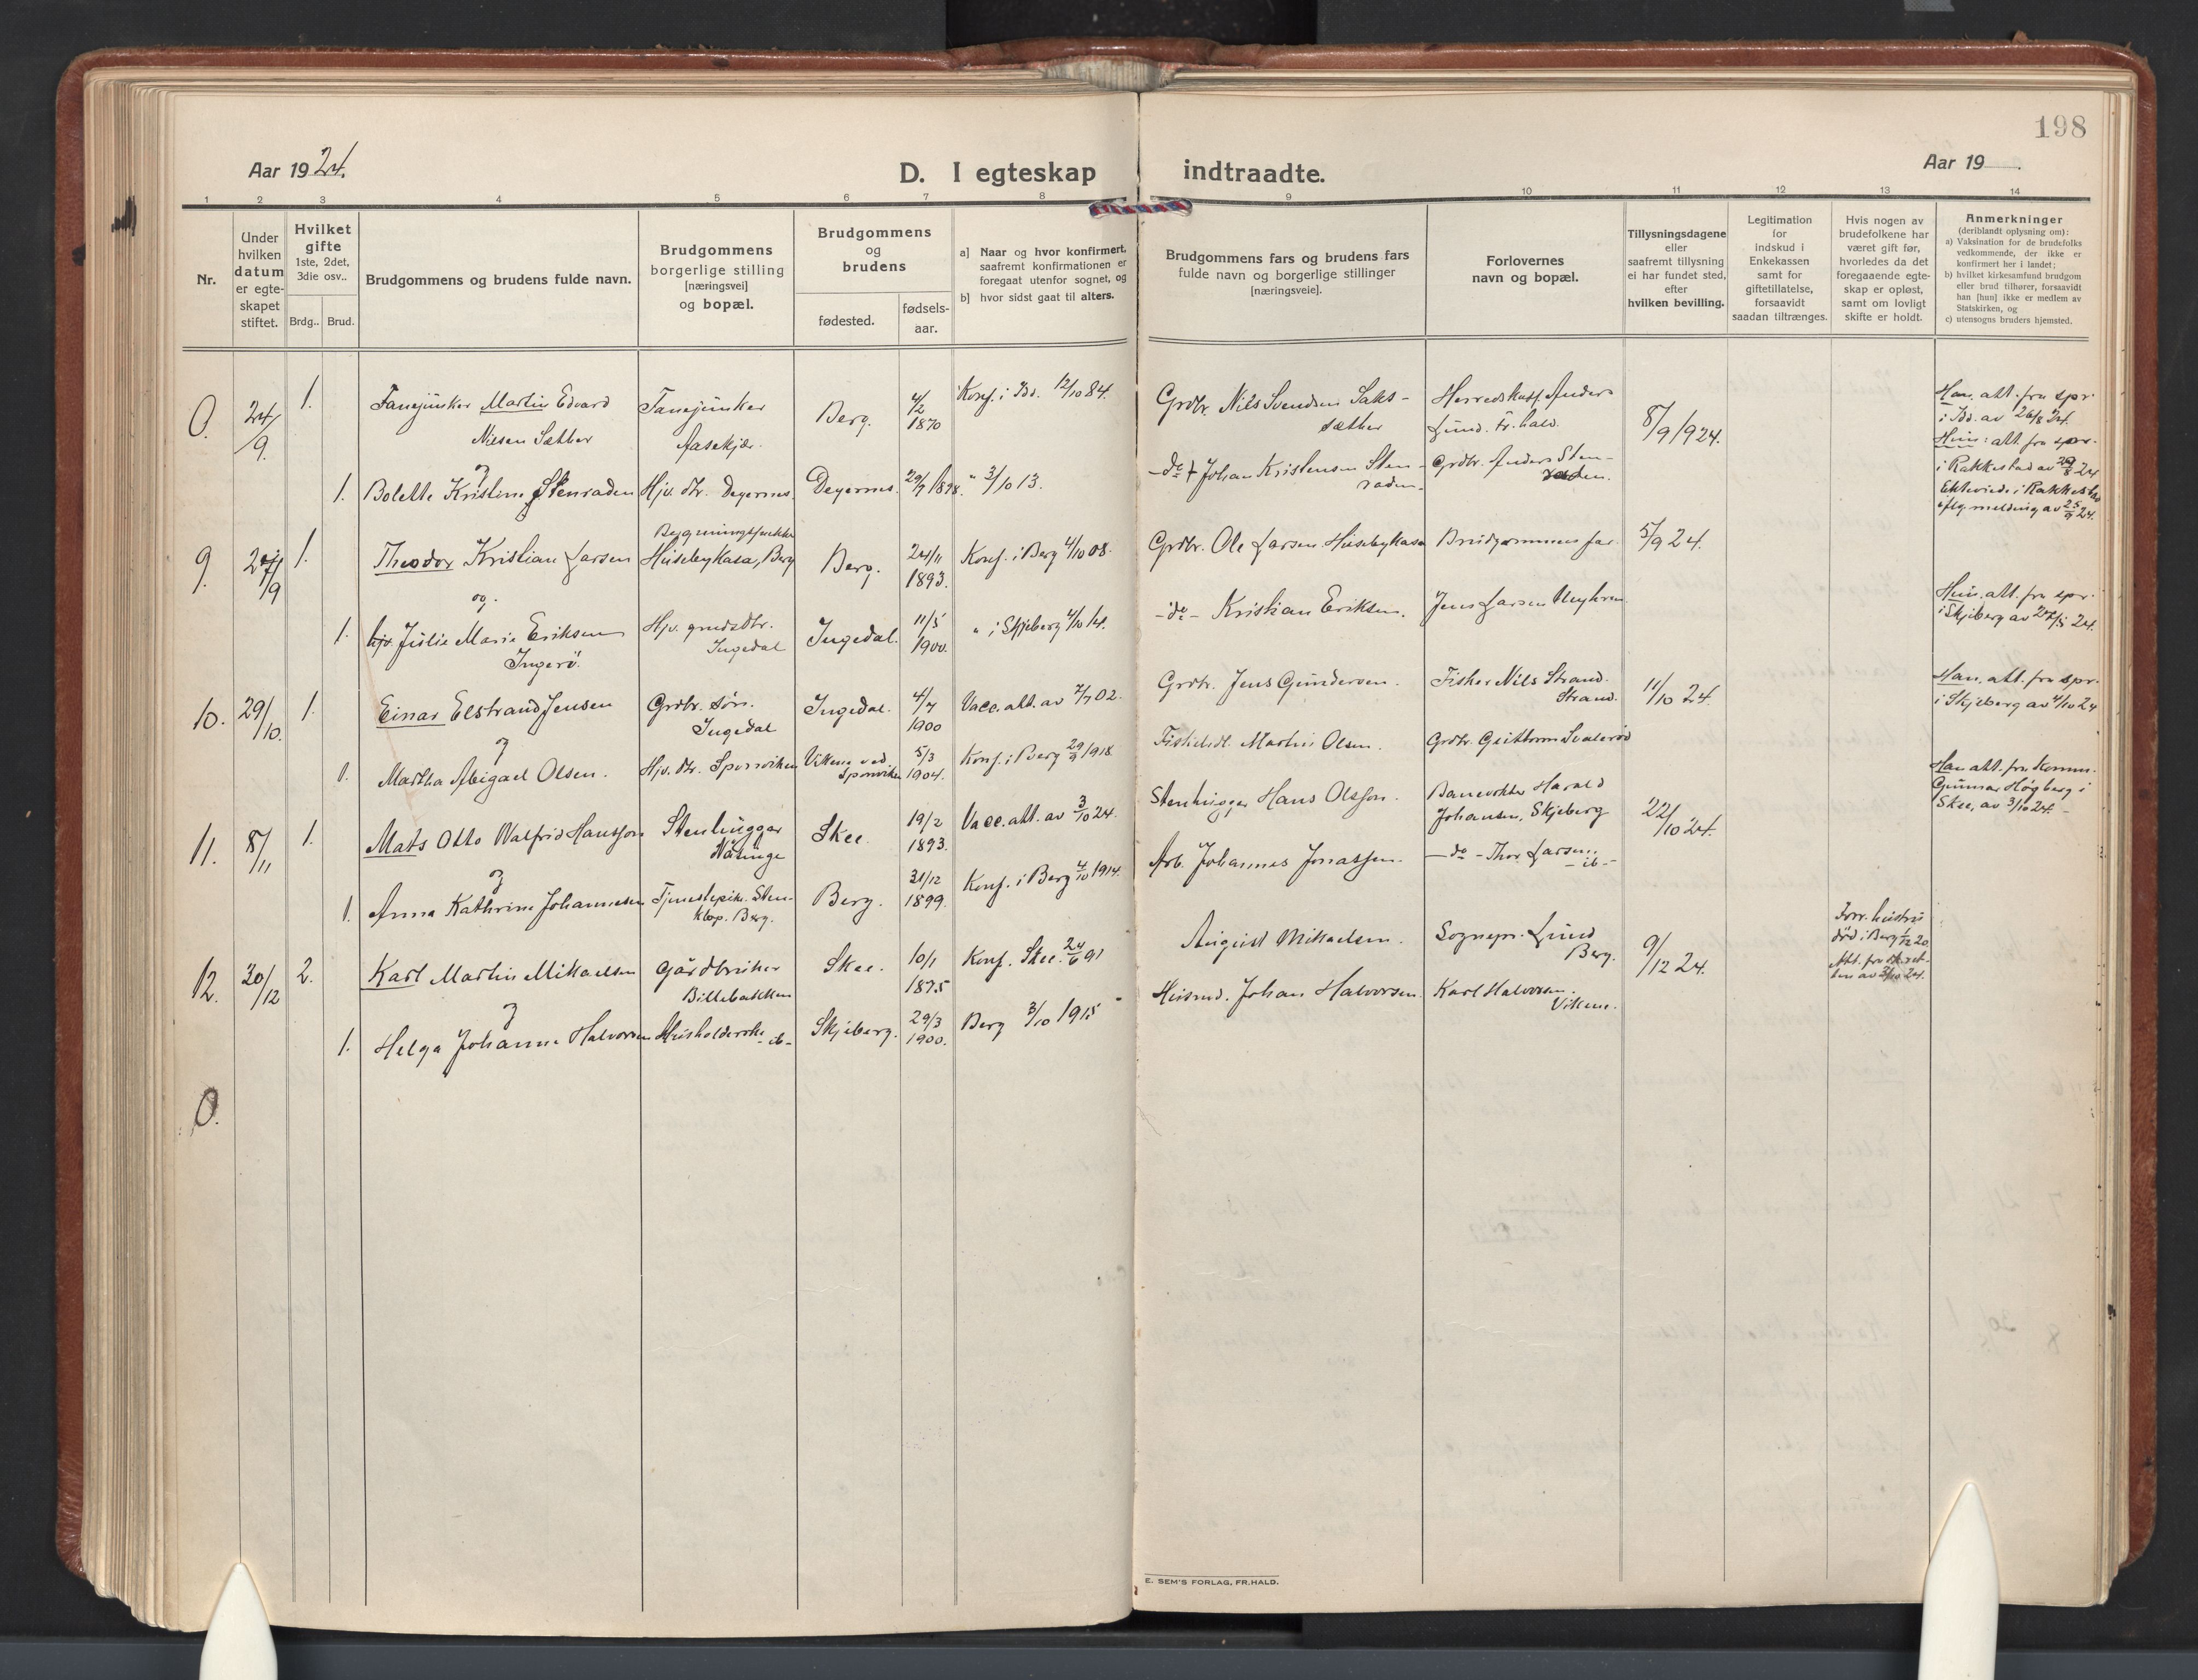 198
Aar 1924.
D. I egteskap indtraadte.
Aar 19
1 2 3 4 5 6 7 8 9 10 11 12 13 14
Nr.
Under
hvilken
datum
er egte-
skapet
stiftet.
Hvilket
gifte
1ste, 2det,
3die osv..
Brdg.. Brud.
Brudgommens og brudens fulde navn.
Brudgommens
borgerlige stilling
[næringsvei]
og bopæl.
Brudgommens
og
brudens
fødested.
fødsels-
aar.
a) Naar og hvor konfirmert,
saafremt konfirmationen er
foregaat utenfor sognet, og
b) hvor sidst gaat til alters.
Brudgommens fars og brudens fars
fulde navn og borgerlige stillinger
[næringsveie].
Forlovernes
navn og bopæl.
Tillysningsdagene
eller
saafremt tillysning
ei har fundet sted,
efter
hvilken bevilling.
Legitimation
for
indskud i
Enkekassen
samt for
giftetillatelse,
forsaavidt
saadan tiltrænges.
Hvis nogen av
brudefolkene har
været gift før,
hvorledes da det
foregaaende egte-
skap er opløst,
samt om lovligt
skifte er holdt.
Anmerkninger
(deriblandt oplysning om):
a) Vaksination for de brudefolks
vedkommende, der ikke er
konfirmert her i landet;
b) hvilket kirkesamfund brudgom
eller brud tilhører, forsaavidt
han [hun] ikke er medlem av
Statskirken, og
c) utensogns bruders hjemsted.
0. 24/9. 1. Fanejunker Martin Edvard
Nilsen Sæther
Fanejunker
Aasekjær.
Berg. 4/2
1870
Konf. i Idd. 12/10 84.
Grdbr. Nils Svendsen Saks-
sæther
Anders
Lund. Fr.hald.
8/9 1924.
Han. att. fra spr.
i Idd. av 26/8 24.
og
1. Bolette Kristine Stenraden
Hjv. dtr. Degernes.
Degernes. 29/7 1878.
" 3/10 13.
-do- † Johan Kristensen Sten-
raden.
Grdbr. Anders Sten-
raden.
Hun: att. fra spr.
i Rakkestad av 29/8 24
Ekteviede i Rakkestad
iflg melding av 25/9 24.
9. 27/9 1. Theodor Kristian Larsen
Husebykasa, Berg
Berg. 24/11
1893.
Konf. i Berg 4/10 08.
Grdbr. Ole Larsen Husebykasa
Brudgommens far.
5/9 24.
og.
1. hjv. Julie Marie Eriksen
Ingerø.
Hjv. grdbdtr.
Ingedal
Ingedal. 11/5
1900.
" i Skjeberg 4/10 14.
-do- Kristian Eriksen.
Jens Larsen
Hun. att. fra spr.
i Skjeberg av 27/5 24.
10. 29/10. 1. Einar Elstrand Jensen
Grdbr. søn.
Ingedal
Ingedal. 4/7
1900
Vacc. att. av 7/7 02.
Grdbr. Jens Gundersen.
Fisker Nils Strand.
Strand.
11/10 24.
Han. att. fra spr.
i Skjeberg av 4/10 24
og
1. Martha Abigael Olsen.
Hjv. dtr. Sponviken
Vikene ved
Sponviken
5/3
1904.
Konf. i Berg 29/9 1918.
Martin Olsen.
Grdbr. Guttorm Svalerød
11. 8/11 1. Mats Otto Walfrid Hansson
Stenhugger
Skee. 19/2
1893.
Vacc. att. av 3/10 24.
Stenhugger Hans Olsson.
Banevokter Harald
Johansen, Skjeberg
22/10 24.
Han att. fra Komm.
Gunnar Högberg i
Skee, av 3/10 24.
og
1. Anna Kathrine Johannesen
Tjenestepike. Sten-
klop. Berg.
Berg. 31/12
1899.
Konf. i Berg 4/10 1914.
Arb. Johannes Jonassen.
-do- Thor Larsen,
-ib-
12. 30/12 2. Karl Martin Mikaelsen
Gårdbruker
Billebakken
Skee. 10/1
1875
Konf. Skee. 24/6 91
August Mikaelsen.
Sognepr. Lund
Berg.
9/12 24.
Forr. hustru
død i Berg 1/12 20.
Att. fra skret-
ten av 2/10 24.
og
1. Helga Johanne Halvorsen
Husholderske -ib-
Skjeberg. 29/3
1900.
Berg 3/10 1915
Husmd. Johan Halvorsen.
Karl Halvorsen.
Vikene.
0.
E. SEM'S FORLAG, FR.HALD.